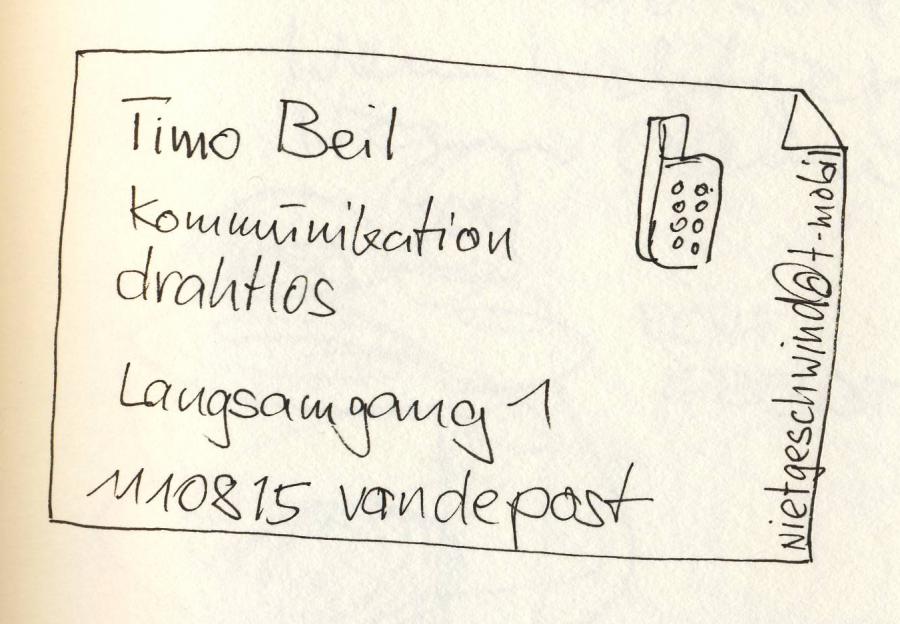 Timo Beil
Kommunikation
drahtlos
Langsamgang 1
1110815 vandepost
Nietgeschwind@t-mobil